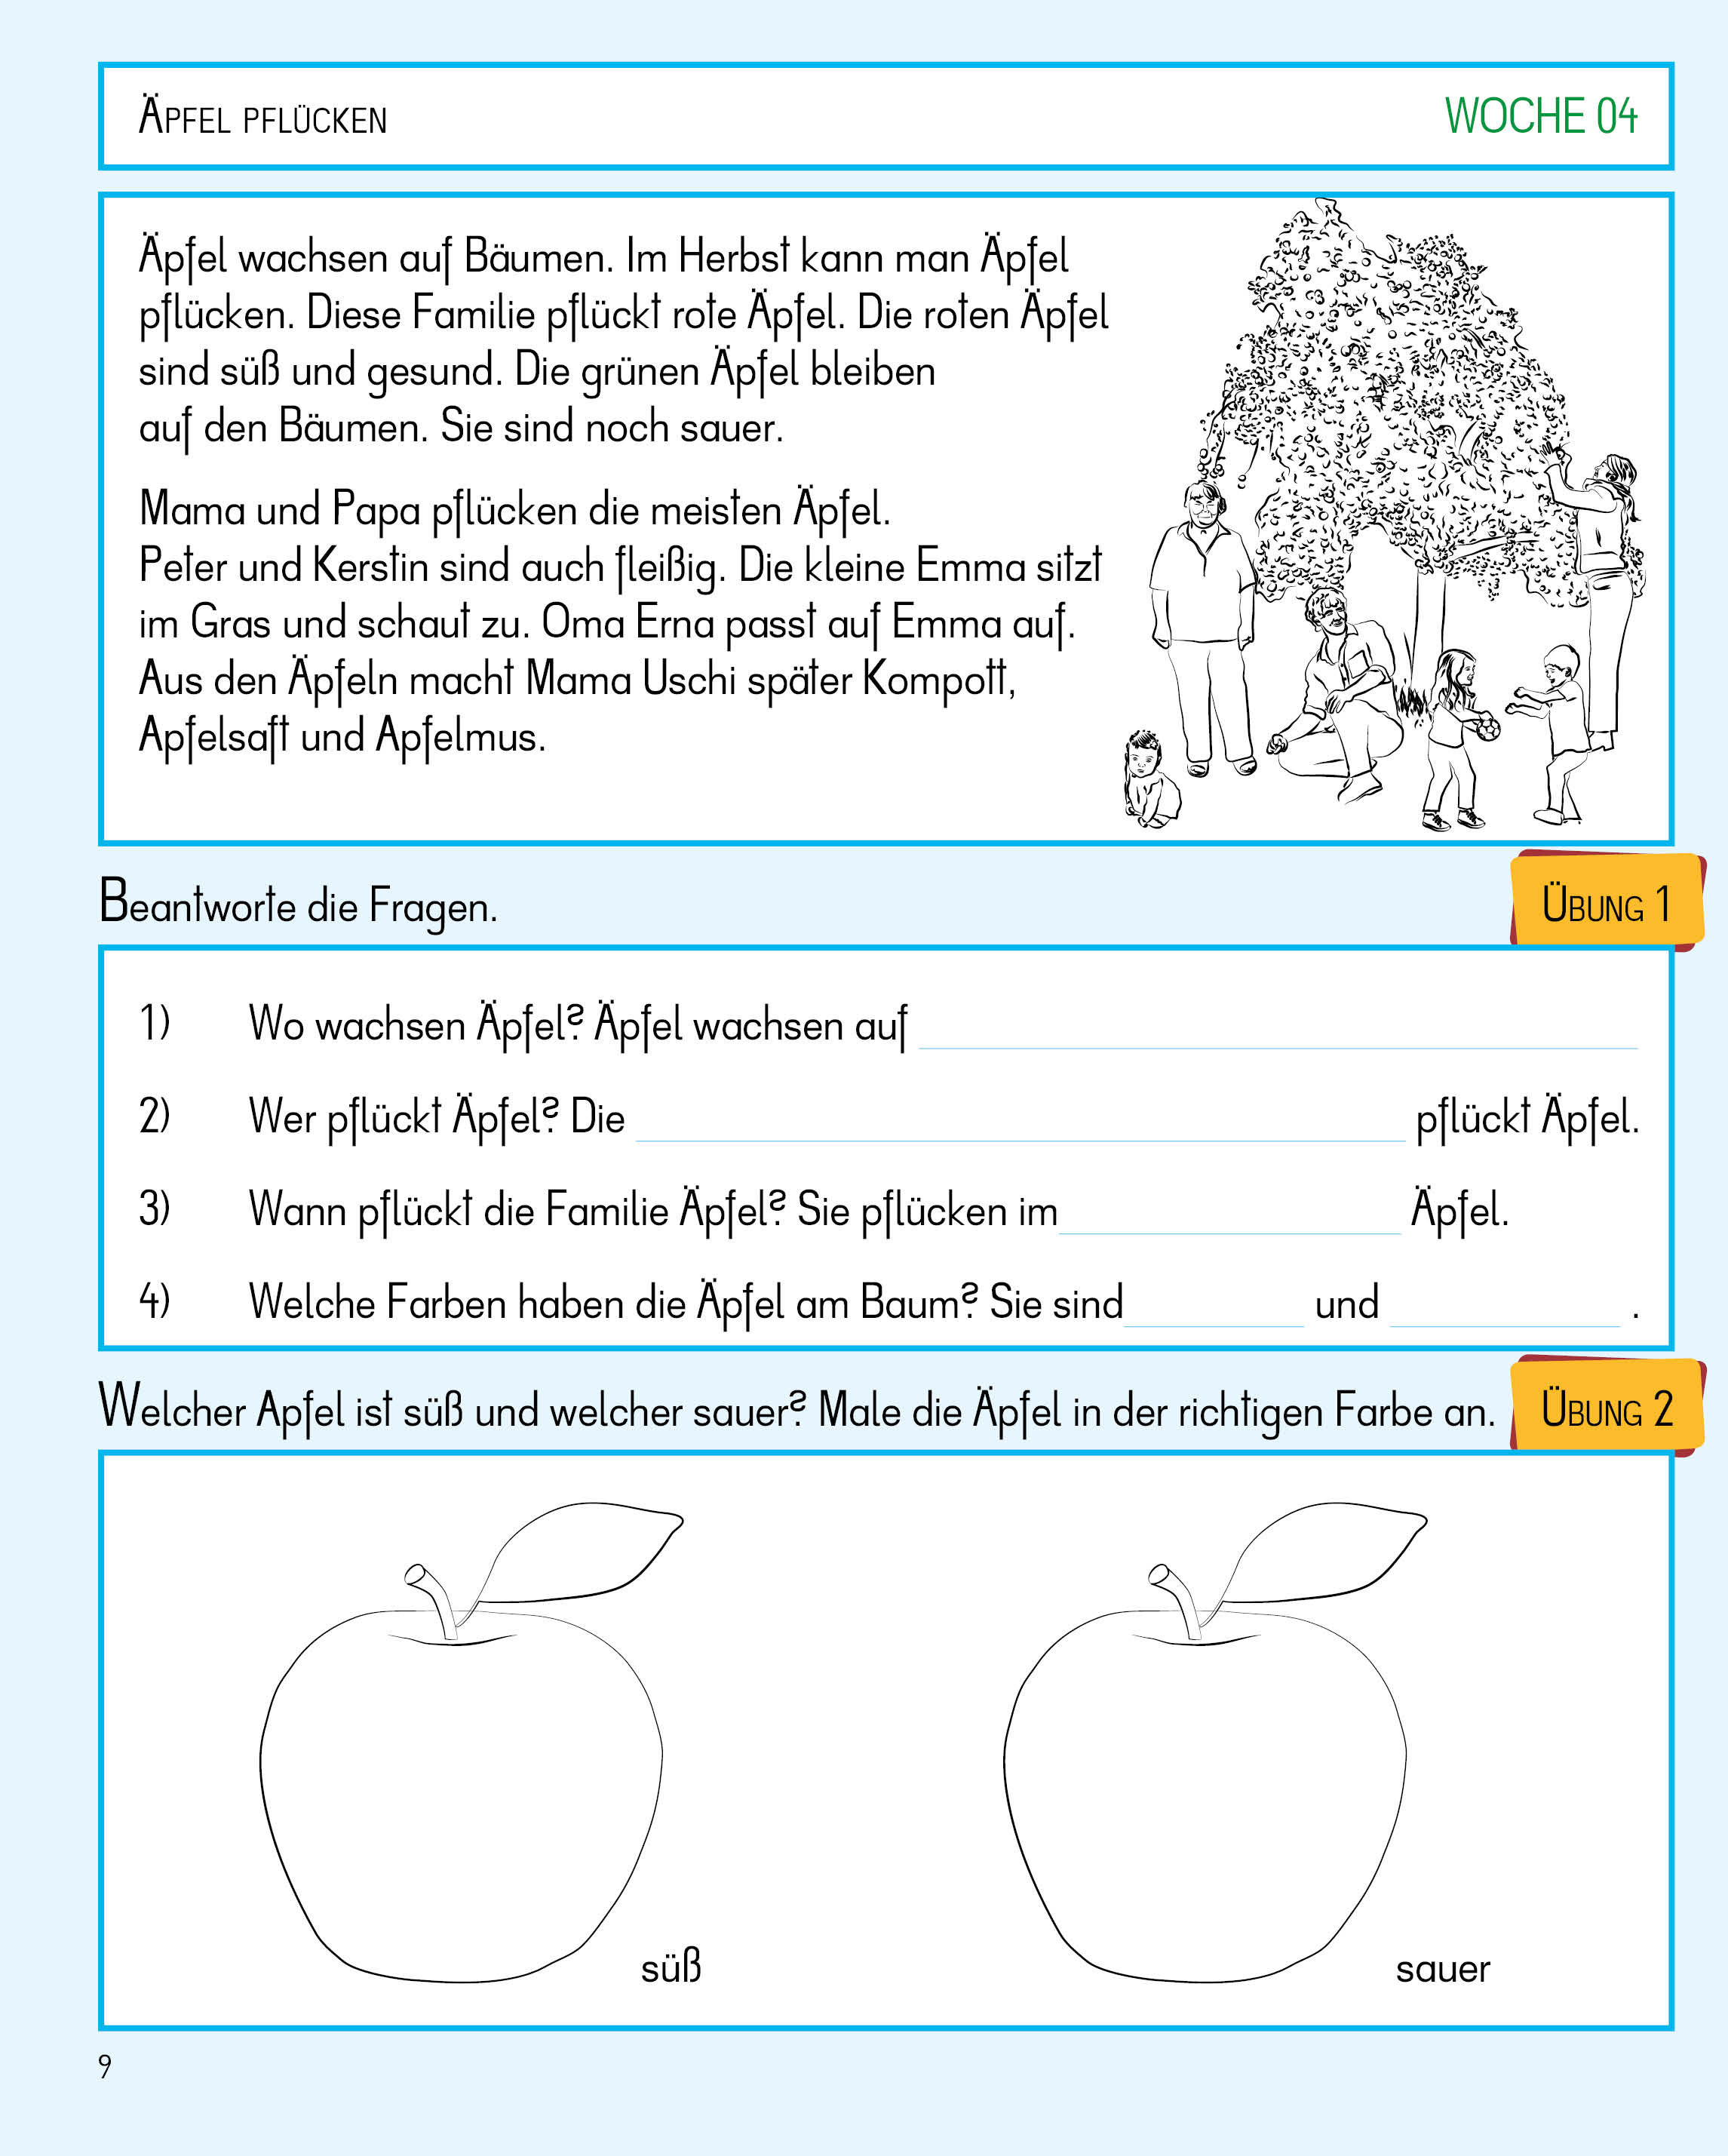 ÄPFEL PFLÜCKEN
WOCHE 04
Äpfel wachsen auf Bäumen. Im Herbst kann man Äpfel
pflücken. Diese Familie pflückt rote Äpfel. Die roten Äpfel
sind süß und gesund. Die grünen Äpfel bleiben
auf den Bäumen. Sie sind noch sauer.
Mama und Papa pflücken die meisten Äpfel.
Peter und Kerstin sind auch fleißig. Die kleine Emma sitzt
im Gras und schaut zu. Oma Erna passt auf Emma auf.
Aus den Äpfeln macht Mama Uschi später Kompott,
Apfelsaft und Apfelmus.
Beantworte die Fragen.
ÜBUNG 1
1) Wo wachsen Äpfel? Äpfel wachsen auf
2) Wer pflückt Äpfel? Die pflückt Äpfel.
3) Wann pflückt die Familie Äpfel? Sie pflücken im Äpfel.
4) Welche Farben haben die Äpfel am Baum? Sie sind und .
Welcher Apfel ist süß und welcher sauer? Male die Äpfel in der richtigen Farbe an.
ÜBUNG 2
süß
sauer
9